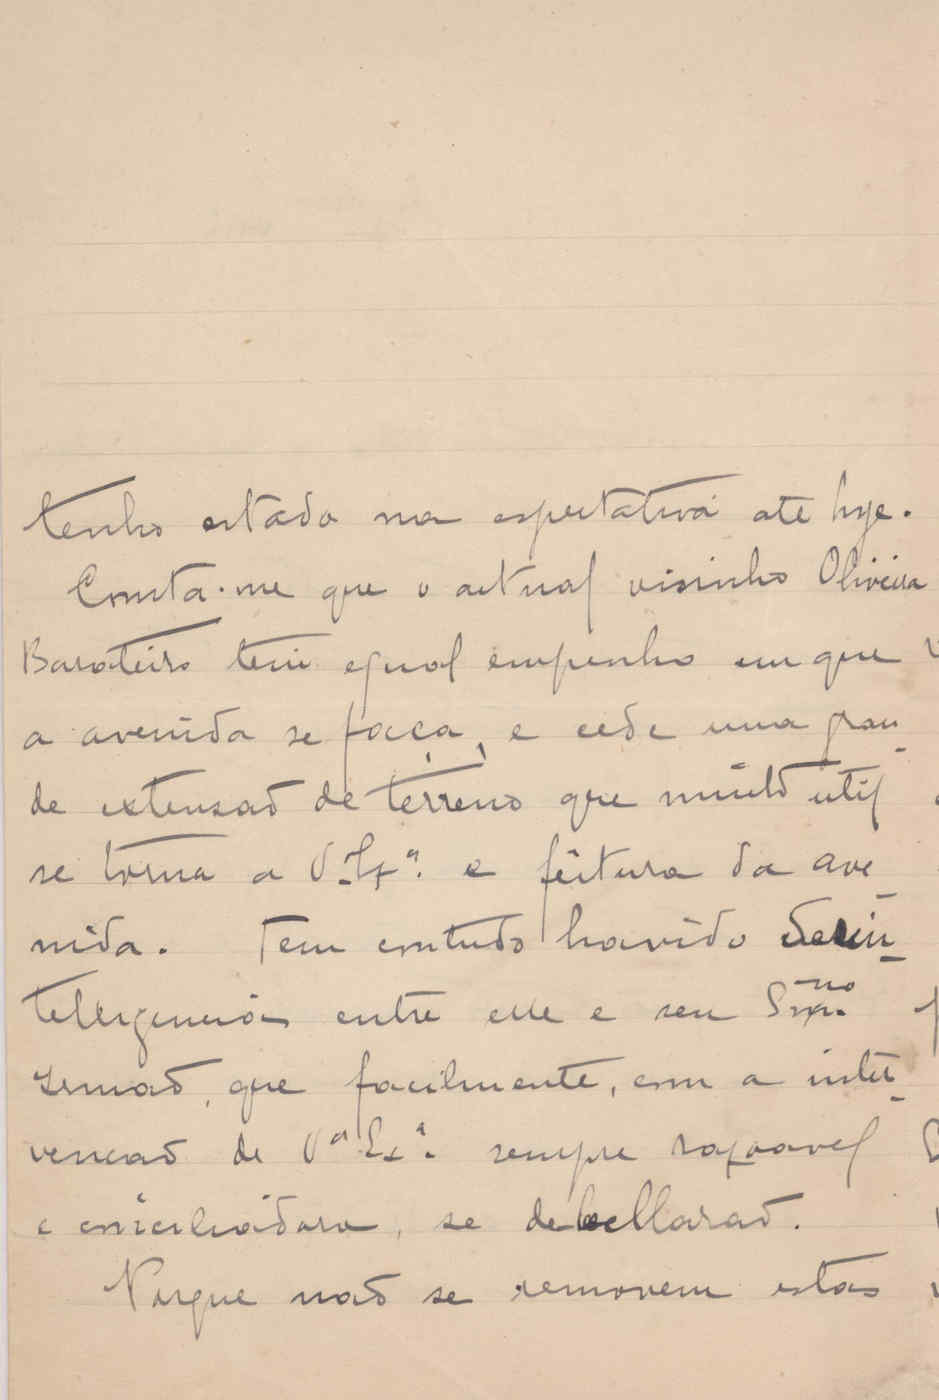 tenho estado na espectativa até hoje.
Consta-me que o actual visinho Oliveira
Barateiro tem egual empenho em que
a avenida se faça, e cede uma gran-
de extensaõ de terreno que muito util
se torna a V. Exª. e feitura da ave-
nida. Tem contudo havido desin-
telligencias entre elle e seu Exmo.
Irmaõ, que facilmente, com a inter-
vencaõ de Vª Exª. sempre razoavel
e conciliadora, se debellaraõ.
Porque naõ se removem estas